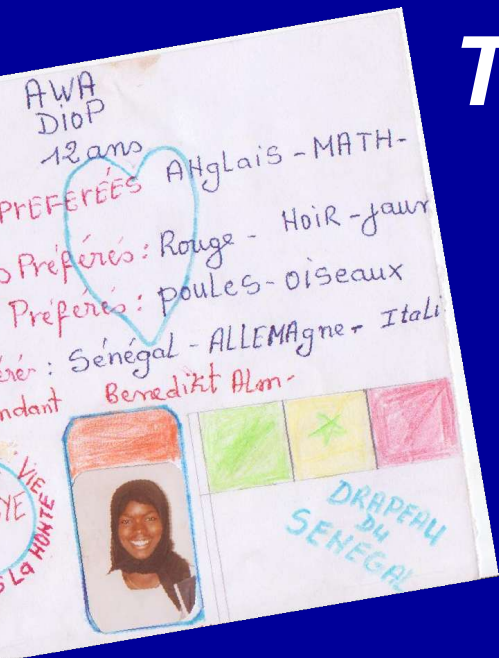 T
AWA
DIOP
12 ans
PREFEREÉS ANglAiS - MATH-
Préférés : Rouge - NOIR - jaun
Préférés : POULES - OISEAUX
: Sénégal - ALLEMAgne - Itali
ndant Benedikt Alm-
VIE
YE
S La HONTE
DRAPEAU
DU
SENEGAL